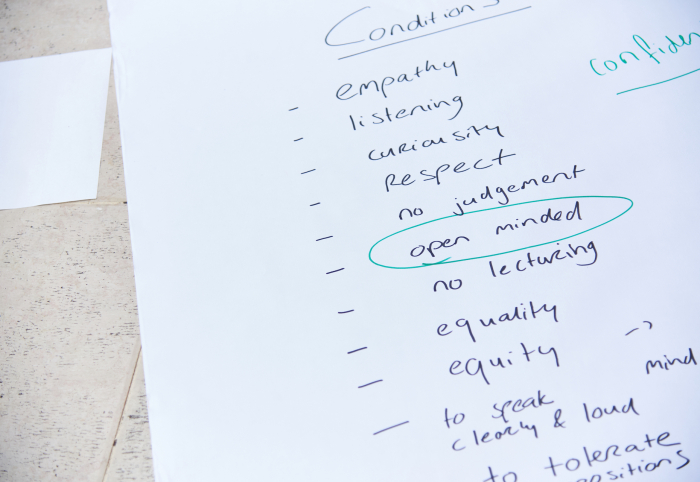 Conditions
- empathy
- listening
- curiousity
- Respect
- no judgement
- open minded
- no lecturing
- equality
- equity ->
mind
- to speak
clearly & loud
to tolerate